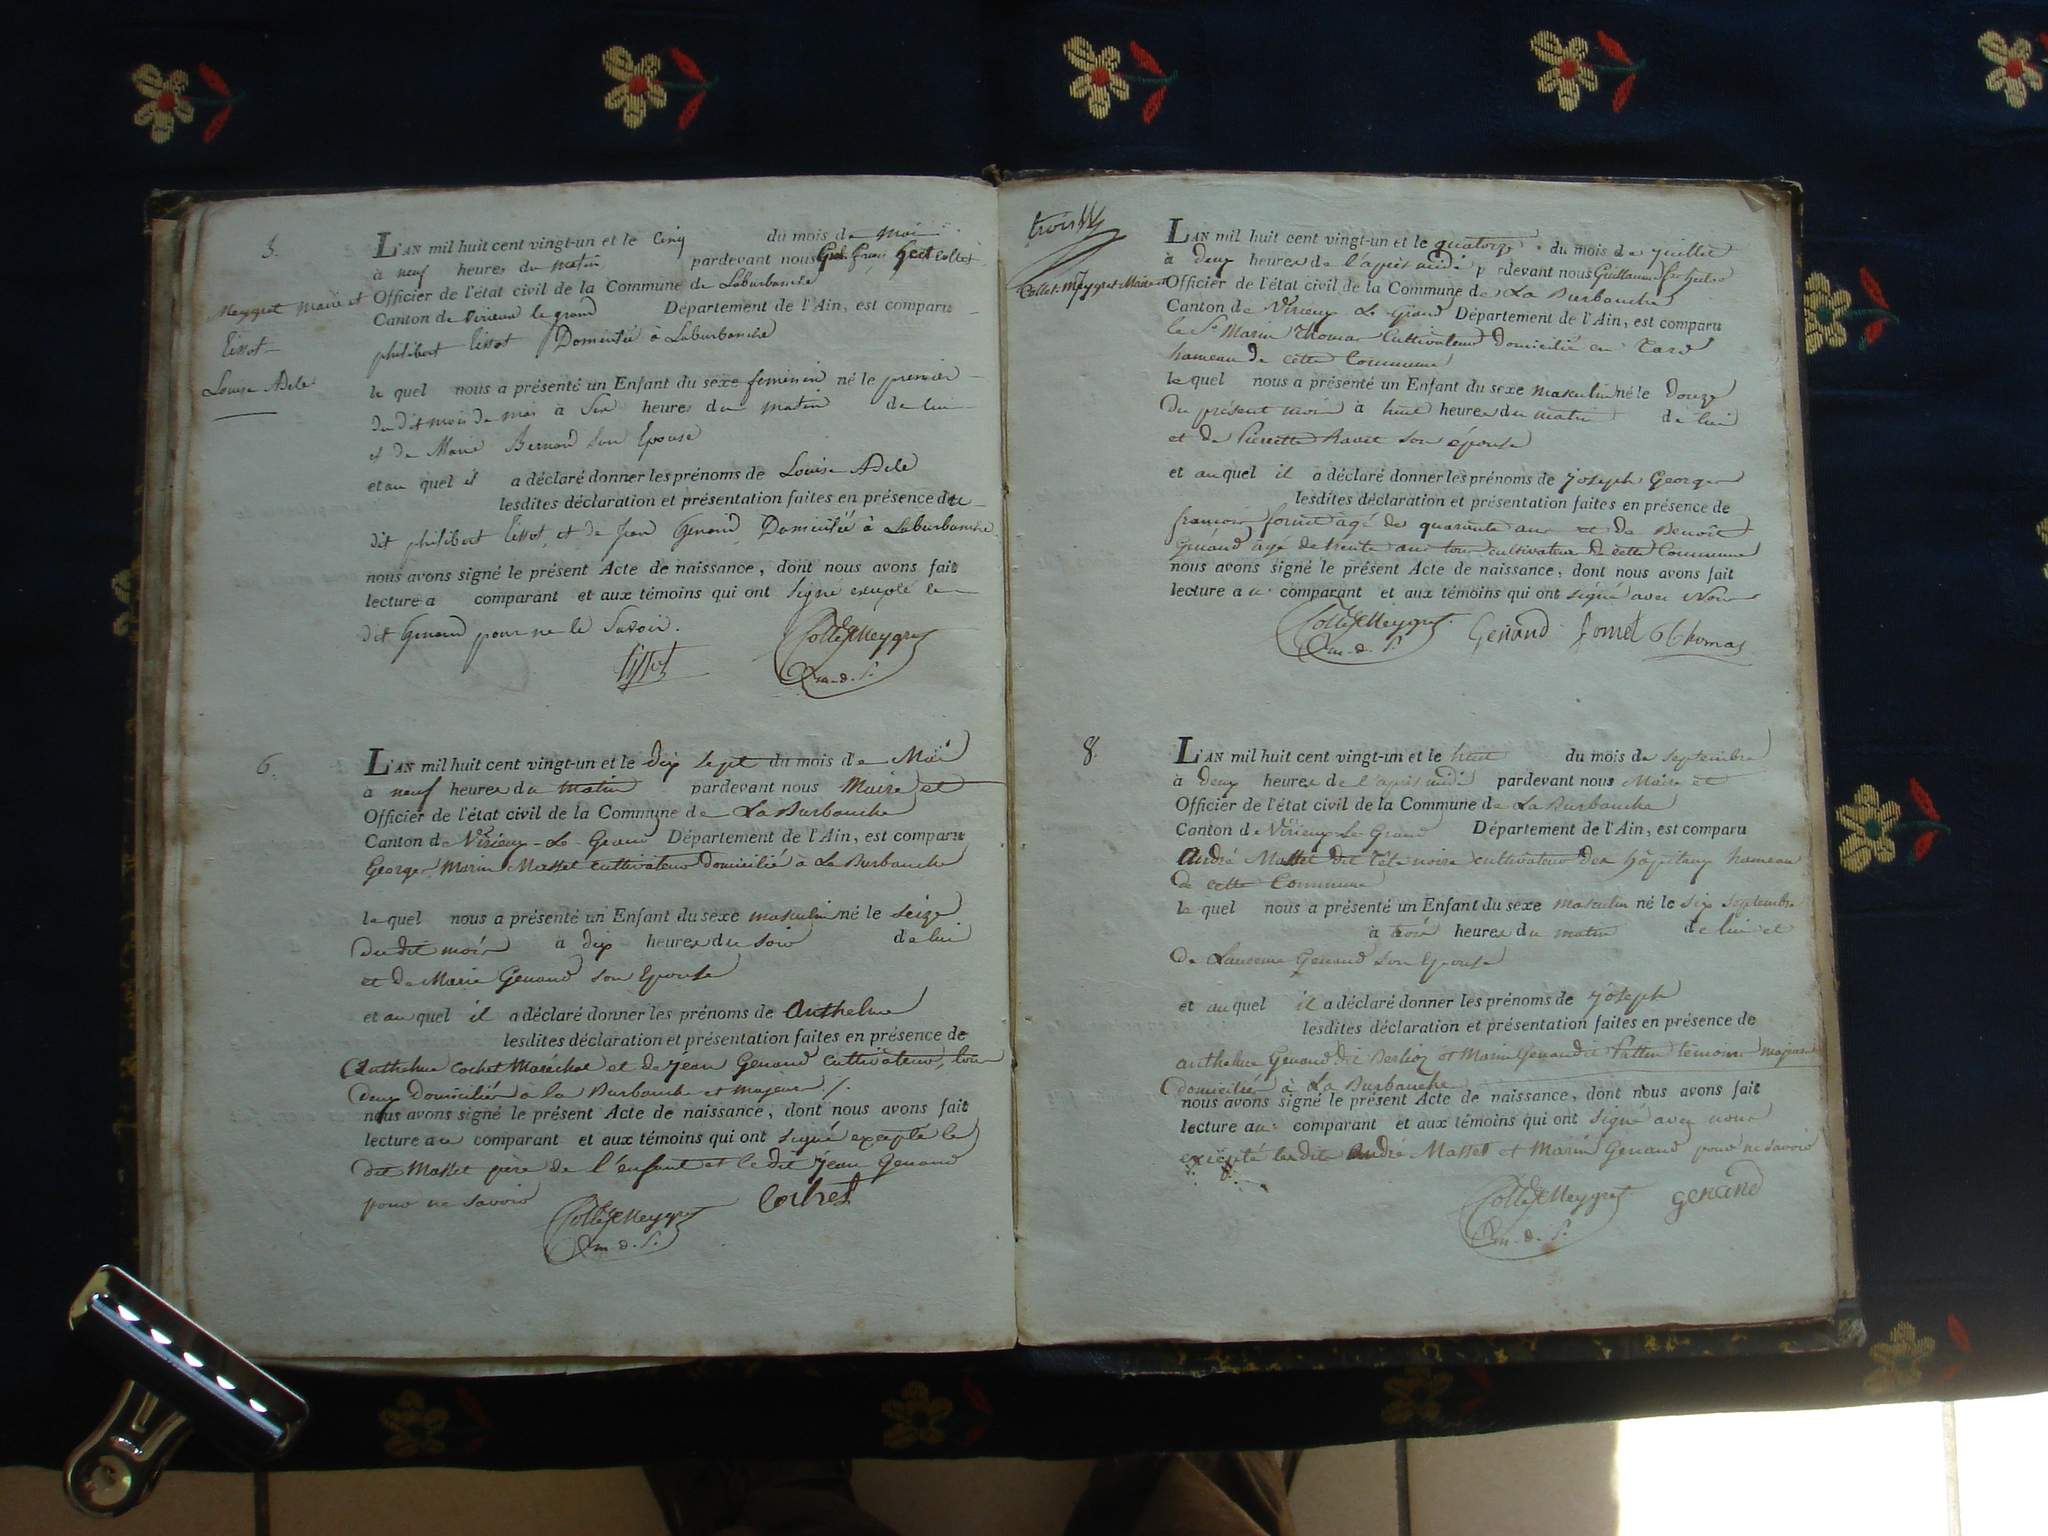 5.
Meygret Maire et
Tissot
Louise Adele
L'AN mil huit cent vingt-un et le Cinq du mois de Mai
à neuf heures du matin pardevant nous
Officier de l'état civil de la Commune de Laburbanche
Canton de Virieux le grand Département de l'Ain, est comparu
philibert Tissot Domicilié à Laburbanche
le quel nous a présenté un Enfant du sexe feminin né le premier
du dit mois de mai à Six heures du matin de lui
et de Marie Bernard Son Epouse
et au quel il a déclaré donner les prénoms de Louise Adele
lesdites déclaration et présentation faites en présence du
dit philibert Tissot, et de Jean Genand, Domicilié à Laburbanche
nous avons signé le présent Acte de naissance, dont nous avons fait
lecture a comparant et aux témoins qui ont Signé excepté le
dit Genand pour ne le Savoir.
Tissot ColletMeygret
m. d. S.
6.
L'AN mil huit cent vingt-un et le dix sept du mois de Mai
à neuf heures du matin pardevant nous Maire et
Officier de l'état civil de la Commune de La Burbanche
Canton de Virieux-Le-Grand Département de l'Ain, est comparu
George Marin Masset cultivateur domicilié à La Burbanche
le quel nous a présenté un Enfant du sexe masculin né le seize
du dit mois à dix heures du soir de lui
et de Marie Genand son Epouse
et au quel il a déclaré donner les prénoms de Anthelme
lesdites déclaration et présentation faites en présence de
Anthelme Cochet Maréchal et de Jean Genand Cultivateur, tous
deux Domiciliés à la Burbanche et majeurs /.
nous avons signé le présent Acte de naissance, dont nous avons fait
lecture au comparant et aux témoins qui ont signé excepté le
dit Masset père de l'enfant et le dit Jean Genand
pour ne savoir
ColletMeygret Cochet
m. d. S.
trois
Collet-Meygret Maire et
L'AN mil huit cent vingt-un et le quatorze du mois de Juillet
à deux heures de l'après midi pardevant nous Guillaume
Officier de l'état civil de la Commune de La Burbanche
Canton de Virieux Le Grand Département de l'Ain, est comparu
le Sr Marin Thomas Cultivateur domicilié en Tard
hameau de cette Commune
le quel nous a présenté un Enfant du sexe masculin né le douze
du présent mois à huit heures du matin de lui
et de Pierrette Ravet son épouse
et au quel il a déclaré donner les prénoms de Joseph George
lesdites déclaration et présentation faites en présence de
francois fornet âgé de quarante ans et de Benoît
Genand âgé de trente ans tous cultivateurs de cette Commune
nous avons signé le présent Acte de naissance, dont nous avons fait
lecture au comparant et aux témoins qui ont signé avec Nous
ColletMeygret Genand fornet Thomas
m. d. S.
8.
L'AN mil huit cent vingt-un et le huit du mois de septembre
à deux heures de l'après midi pardevant nous Maire et
Officier de l'état civil de la Commune de La Burbanche
Canton de Virieux-Le-Grand Département de l'Ain, est comparu
André Masset dit Tête noire cultivateur des hôpitaux hameau
de cette Commune
le quel nous a présenté un Enfant du sexe masculin né le six septembre
à trois heures du matin de lui et
de Laurence Genand son Epouse
et au quel il a déclaré donner les prénoms de Joseph
lesdites déclaration et présentation faites en présence de
Anthelme Genand dit Berlioz et Marin Genand dit témoins majeurs
domiciliés à La Burbanche
nous avons signé le présent Acte de naissance, dont nous avons fait
lecture au comparant et aux témoins qui ont signé avec nous
excepté les dits André Masset et Marin Genand pour ne savoir
ColletMeygret Genand
m. d. S.